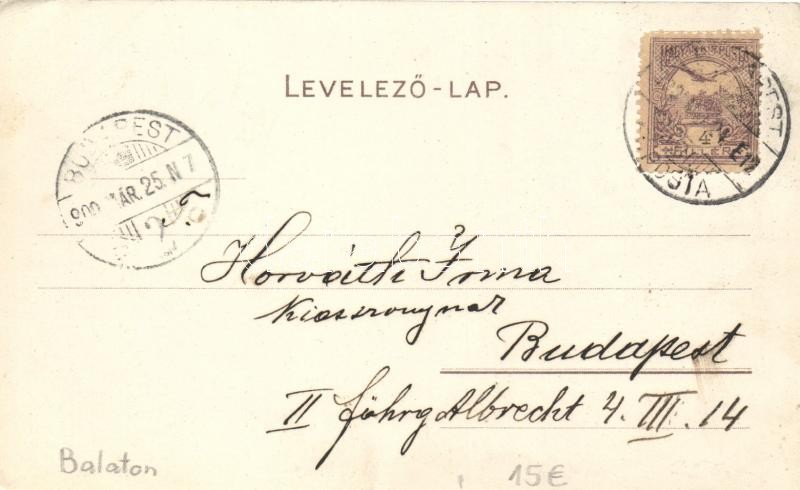 LEVELEZŐ-LAP.
MAGYAR KIR. POSTA
4
BUDAPEST
900 MÁR. 25. N 7
POSTA
Horváth Irma
Kisasszonynak
Budapest
II föhrg Albrecht 4. III. 14
Balaton
15€